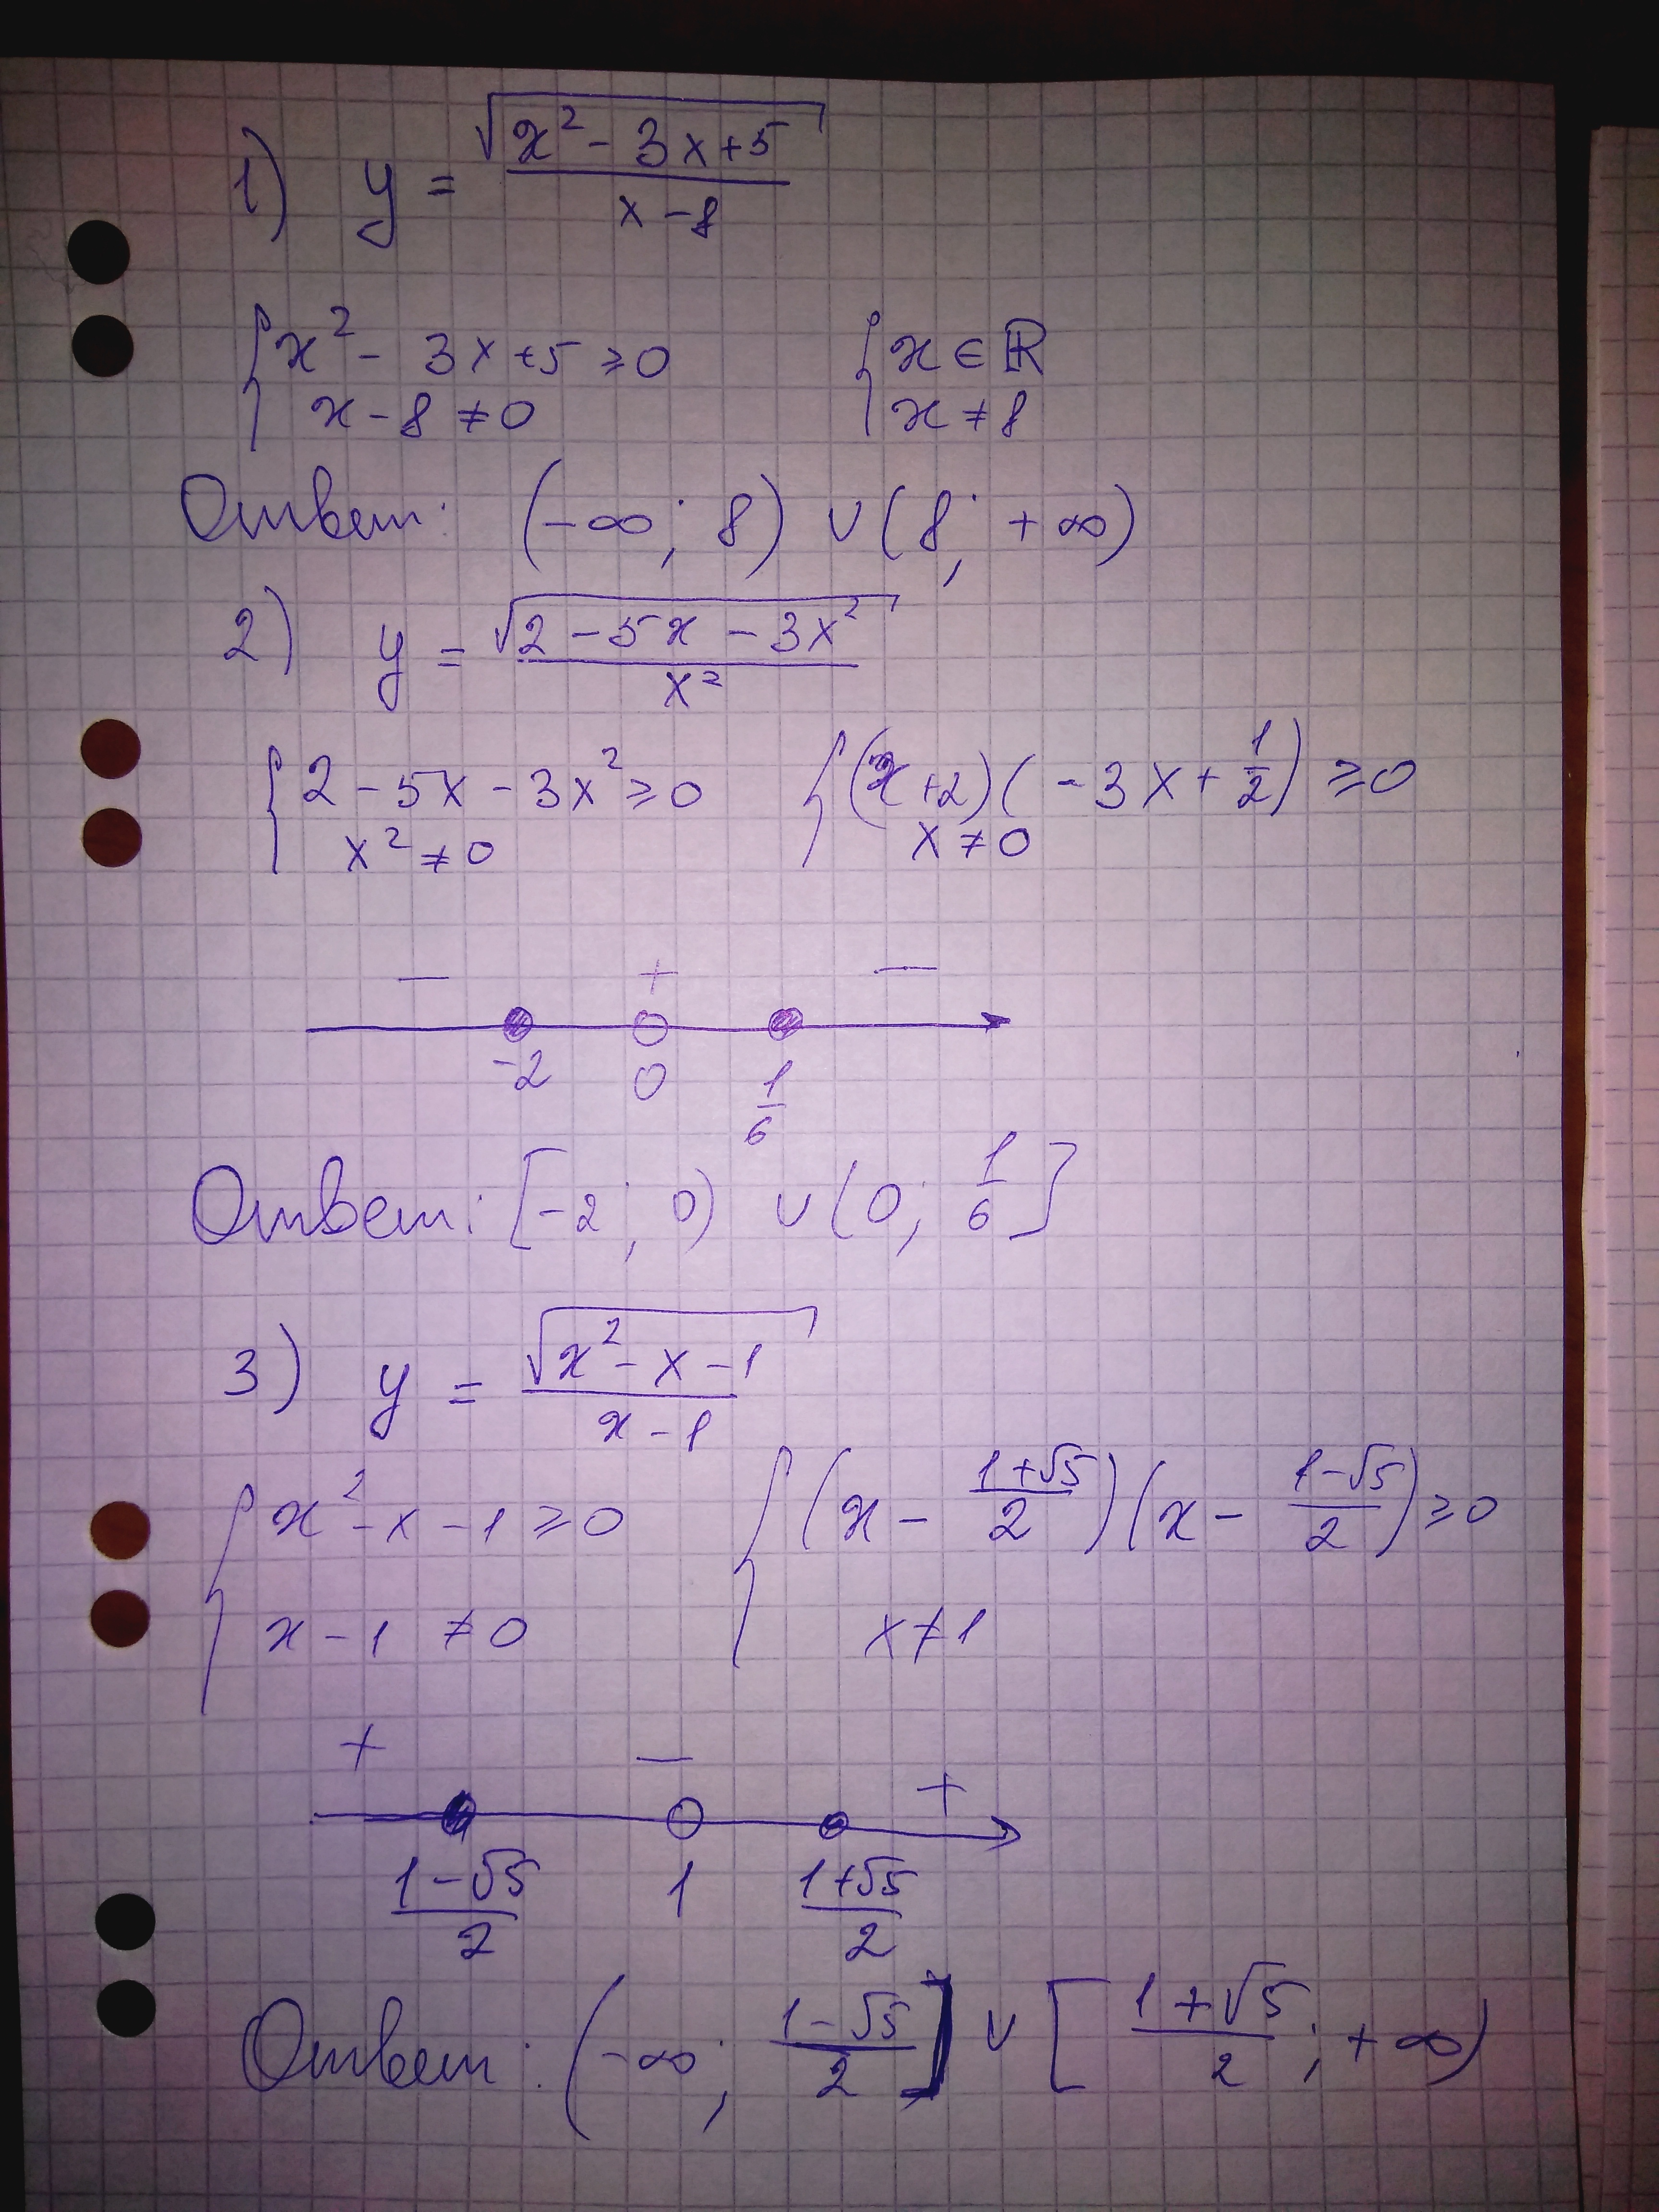 1) y = √(x² - 3x + 5) / (x - 8)
{ x² - 3x + 5 ≥ 0 { x ∈ ℝ
x - 8 ≠ 0 x ≠ 8
Ответ: (-∞; 8) ∪ (8; +∞)
2) y = √(2 - 5x - 3x²) / x²
{ 2 - 5x - 3x² ≥ 0 { (x + 2)(-3x + 1/2) ≥ 0
x² ≠ 0 x ≠ 0
- + -
-2 0 1/6
Ответ: [-2; 0) ∪ (0; 1/6]
3) y = √(x² - x - 1) / (x - 1)
{ x² - x - 1 ≥ 0 { (x - (1+√5)/2)(x - (1-√5)/2) ≥ 0
x - 1 ≠ 0 x ≠ 1
+ - +
(1-√5)/2 1 (1+√5)/2
Ответ: (-∞; (1-√5)/2] ∪ [(1+√5)/2; +∞)